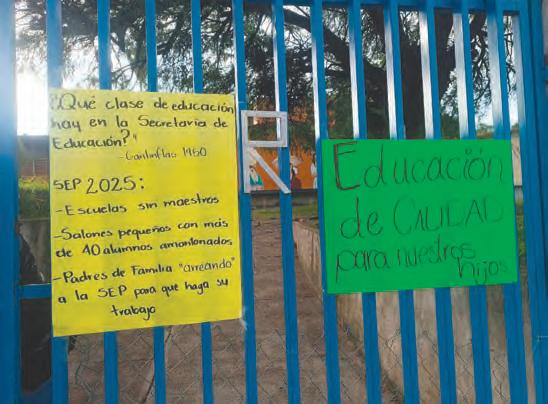 ¿Qué clase de educación
hay en la Secretaría de
Educación?"
- Cantinflas 1950
SEP 2025:
- Escuelas sin maestros
- Salones pequeños con más
de 40 alumnos amontonados
- Padres de Familia "arreando"
a la SEP para que haga su
trabajo
Educación
de CALIDAD
para nuestros
hijos